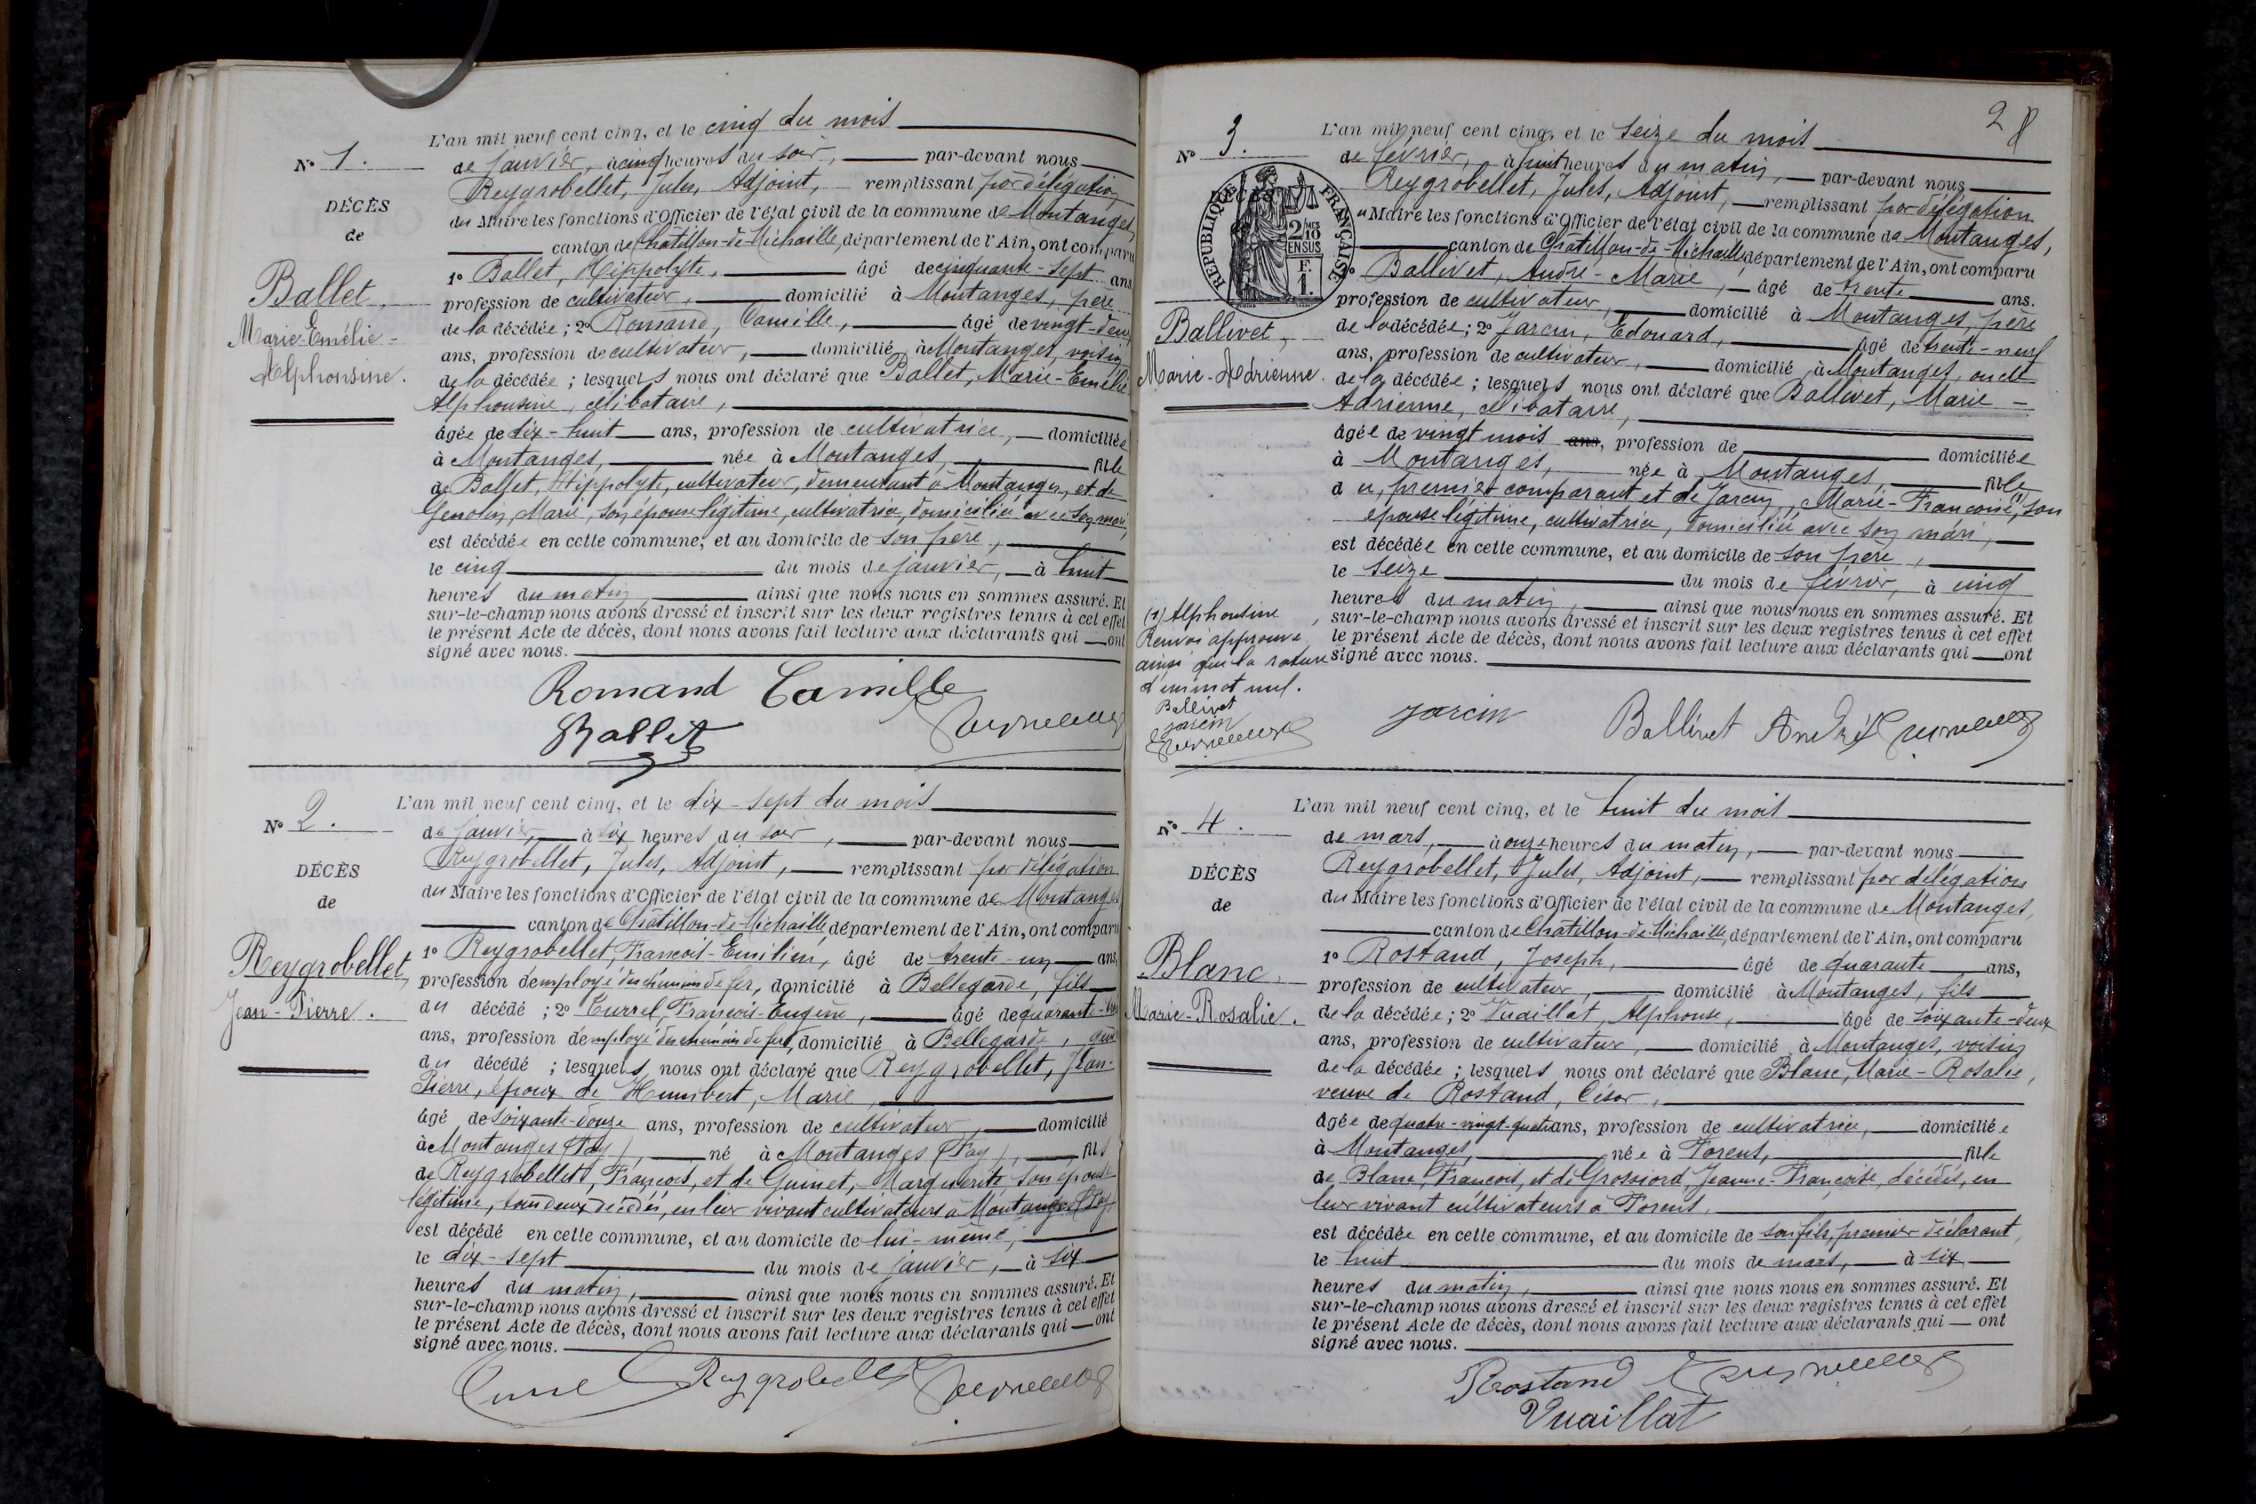 L'an mil neuf cent cinq, et le cinq du mois
N° 1. de janvier, à cinq heures du soir, par-devant nous
Reygrobellet, Jules, Adjoint, remplissant par délégation
DÉCÈS
du Maire les fonctions d'Officier de l'état civil de la commune de Montanges,
de
canton de Châtillon-de-Michaille, département de l'Ain, ont comparu
1° Ballet, Hippolyte, âgé de cinquante-sept ans
Ballet,
profession de cultivateur, domicilié à Montanges, père
Marie-Emélie-
de la décédée; 2° Romand, Camille, âgé de vingt-deux
ans, profession de cultivateur, domicilié à Montanges, voisin
Alphonsine.
de la décédée; lesquels nous ont déclaré que Ballet, Marie-Emélie
Alphonsine, célibataire,
âgée de dix-huit ans, profession de cultivatrice, domiciliée
à Montanges, née à Montanges, fille
de Ballet, Hippolyte, cultivateur, demeurant à Montanges, et de
Genolin, Marie, son épouse légitime, cultivatrice, domiciliée avec son mari,
est décédée en cette commune, et au domicile de son père,
le cinq du mois de janvier, à huit
heures du matin, ainsi que nous nous en sommes assuré. Et
sur-le-champ nous avons dressé et inscrit sur les deux registres tenus à cet effet
le présent Acte de décès, dont nous avons fait lecture aux déclarants qui ont
signé avec nous.
Romand Camille
Ballet
L'an mil neuf cent cinq, et le dix-sept du mois
N° 2. de janvier, à six heures du soir, par-devant nous
Reygrobellet, Jules, Adjoint, remplissant par délégation
DÉCÈS
du Maire les fonctions d'Officier de l'état civil de la commune de Montanges
de
canton de Châtillon-de-Michaille, département de l'Ain, ont comparu
Reygrobellet,
1° Reygrobellet, François-Emilien, âgé de trente-un ans,
profession d'employé des chemins de fer, domicilié à Bellegarde, fils
Jean-Pierre.
du décédé; 2° Turrel, François-Eugène, âgé de quarante-
ans, profession d'employé des chemins de fer, domicilié à Bellegarde,
du décédé; lesquels nous ont déclaré que Reygrobellet, Jean-
Pierre, époux de Humbert, Marie,
âgé de soixante-douze ans, profession de cultivateur, domicilié
à Montanges (Fay), né à Montanges (Fay), fils
de Reygrobellet, François, et de Guinet, Marguerite son épouse
légitime, tous deux décédés, en leur vivant cultivateurs à Montanges (Fay)
est décédé en cette commune, et au domicile de lui-même,
le dix-sept du mois de janvier, à six
heures du matin, ainsi que nous nous en sommes assuré. Et
sur-le-champ nous avons dressé et inscrit sur les deux registres tenus à cet effet
le présent Acte de décès, dont nous avons fait lecture aux déclarants qui ont
signé avec nous.
Reygrobellet
28
L'an mil neuf cent cinq, et le seize du mois
N° 3. de février, à huit heures du matin, par-devant nous
Reygrobellet, Jules, Adjoint, remplissant par délégation
DÉCÈS
RÉPUBLIQUE FRANÇAISE
2/10 MES
EN SUS
F.
1.
u Maire les fonctions d'Officier de l'état civil de la commune de Montanges,
canton de Châtillon-de-Michaille, département de l'Ain, ont comparu
1° Ballivet, André-Marie, âgé de trente ans.
profession de cultivateur, domicilié à Montanges, père
Ballivet,
de la décédée; 2° Jarcin, Edouard, âgé de trente-neuf
ans, profession de cultivateur, domicilié à Montanges, oncle
Marie-Adrienne.
de la décédée; lesquels nous ont déclaré que Ballivet, Marie-
Adrienne, célibataire,
âgée de vingt mois ans, profession de domiciliée
à Montanges, née à Montanges, fille
d u, premier comparant et de Jarcin, Marie-Françoise (1), son
épouse légitime, cultivatrice, domiciliée avec son mari,
est décédée en cette commune, et au domicile de son père,
le seize du mois de février, à cinq
heures du matin, ainsi que nous nous en sommes assuré. Et
sur-le-champ nous avons dressé et inscrit sur les deux registres tenus à cet effet
le présent Acte de décès, dont nous avons fait lecture aux déclarants qui ont
signé avec nous.
(1) Alphonsine
Renvoi approuvé
ainsi que la rature
d'un mot nul.
Ballivet
Jarcin
Jarcin Ballivet André
L'an mil neuf cent cinq, et le huit du mois
N° 4. de mars, à onze heures du matin, par-devant nous
Reygrobellet, Jules, Adjoint, remplissant par délégation
DÉCÈS
du Maire les fonctions d'Officier de l'état civil de la commune de Montanges,
de
canton de Châtillon-de-Michaille, département de l'Ain, ont comparu
1° Rostand, Joseph, âgé de quarante ans,
Blanc,
profession de cultivateur, domicilié à Montanges, fils
Marie-Rosalie.
de la décédée; 2° Vuaillat, Alphonse, âgé de soixante-deux
ans, profession de cultivateur, domicilié à Montanges, voisin
de la décédée; lesquels nous ont déclaré que Blanc, Marie-Rosalie,
veuve de Rostand, César,
âgée de quatre-vingt-quatre ans, profession de cultivatrice, domiciliée
à Montanges, née à Forens, fille
de Blanc, François, et de Grossiord, Jeanne-Françoise, décédés, en
leur vivant cultivateurs à Forens,
est décédée en cette commune, et au domicile de son fils, premier déclarant,
le huit du mois de mars, à six
heures du matin, ainsi que nous nous en sommes assuré. Et
sur-le-champ nous avons dressé et inscrit sur les deux registres tenus à cet effet
le présent Acte de décès, dont nous avons fait lecture aux déclarants qui ont
signé avec nous.
Rostand
Vuaillat